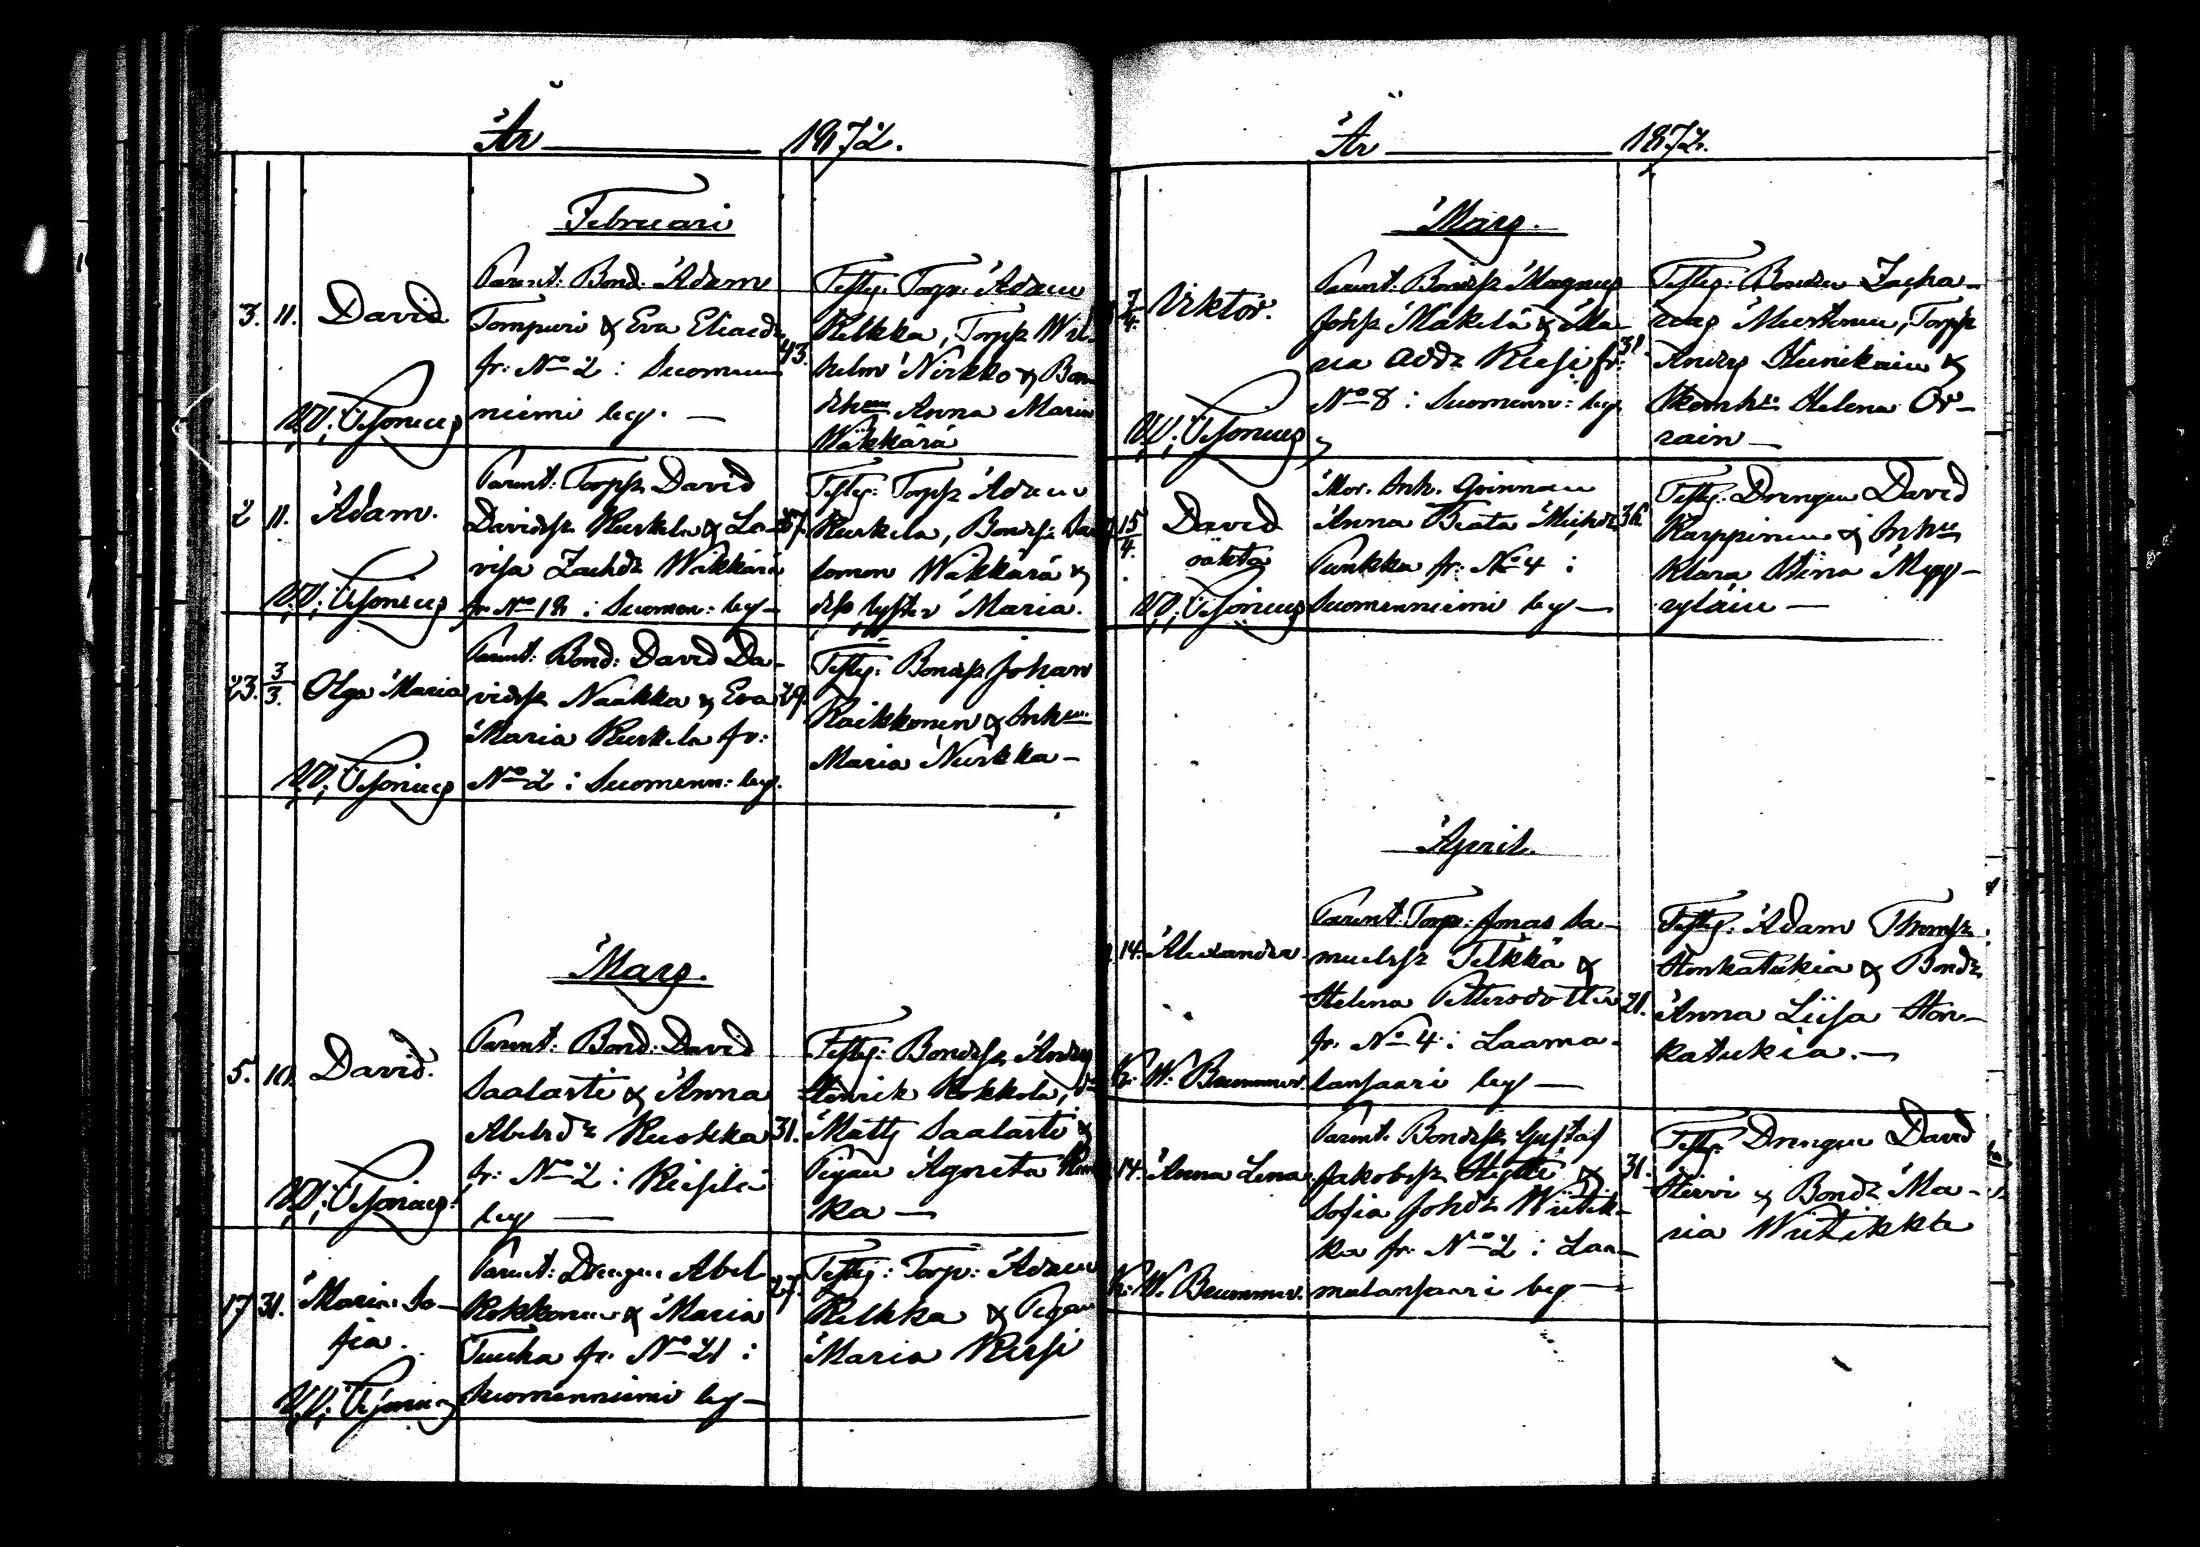 År 1872.
Februari
3. 11. David
Parent: Bond. Adam
Tompuri & Eva Eliasdr
fr. No 2 i Suomen-
niemi by. —
43.
Testes: Torp: Adam
Kelkka, Torps Wil-
helm Nirkko & Bon-
Anna Maria
Wäkkärä
2 11. Adam.
Parent: Torps David
Davidss Kurkela & Lo-
visa Zachdr Wäkkärä
fr No 18 i Suomen: by—
37.
Testes: Torps Adam
Kurkela, Bondss Sa-
lomon Wäkkärä &
dess syster Maria.
23. 3/3. Olga Maria
Parent: Bond: David Da-
vidss Naakka & Eva
Maria Kurkela fr:
No 2 i Suomenn: by.
29.
Testes: Bondss Johan
Raikkonen & Inhn
Maria Nurkka—
Mars.
5. 10. David.
Parent: Bond: David
Saalasti & Anna
Abelsdr Ruokka
fr. No 2 i
by —
31.
Testes: Bondss Anders
Henrik Kokkola,
Matts Saalasti &
Pigan Agneta
ka —
17 31. Maria So-
fia.
Parent: Drengen Abel
Kokkonen & Maria
fr. No 21 i
Suomenniemi by—
27.
Testes: Torp: Adam
Kelkka & Pigan
Maria Kirsi
År 1872.
Mars.
7/4. Viktor.
Parent: Bondss Magnus
Johss Mäkelä & Ma-
ria Addr fr.
No 8 i Suomenn: by
31.
Testes: Bonden Zacha-
rias Murtonen, Torps
Anders Hunikain &
Helena Or-
rain —
15/4. David
oäkta
Mor. Inh. qvinnan
Anna Beata Michdr
Punkka fr. No 4 i
Suomenniemi by—
36.
Testes: Drengen David
Karppinen & Inhn
Klara Stina Myy-
ryläin —
April.
14. Alexander
Parent: Torp: Jonas Sa-
muelss Telkkä &
Helena Pettersdotter
fr. No 4 i Laama-
lansaari by —
21.
Testes: Adam Thomss
Honkatukia & Bondr
Anna Liisa Hon-
katukia. —
K. W. Brummer.
14. Anna Lena
Parent. Bondss Gustaf
Jakobss Hytti &
Sofia Johdr Wiitik-
ka fr. No 2 i Laa-
malansaari by—
31.
Testes Drengen David
Hirvi & Bondr Ma-
ria Wiitikka
K. W. Brummer.